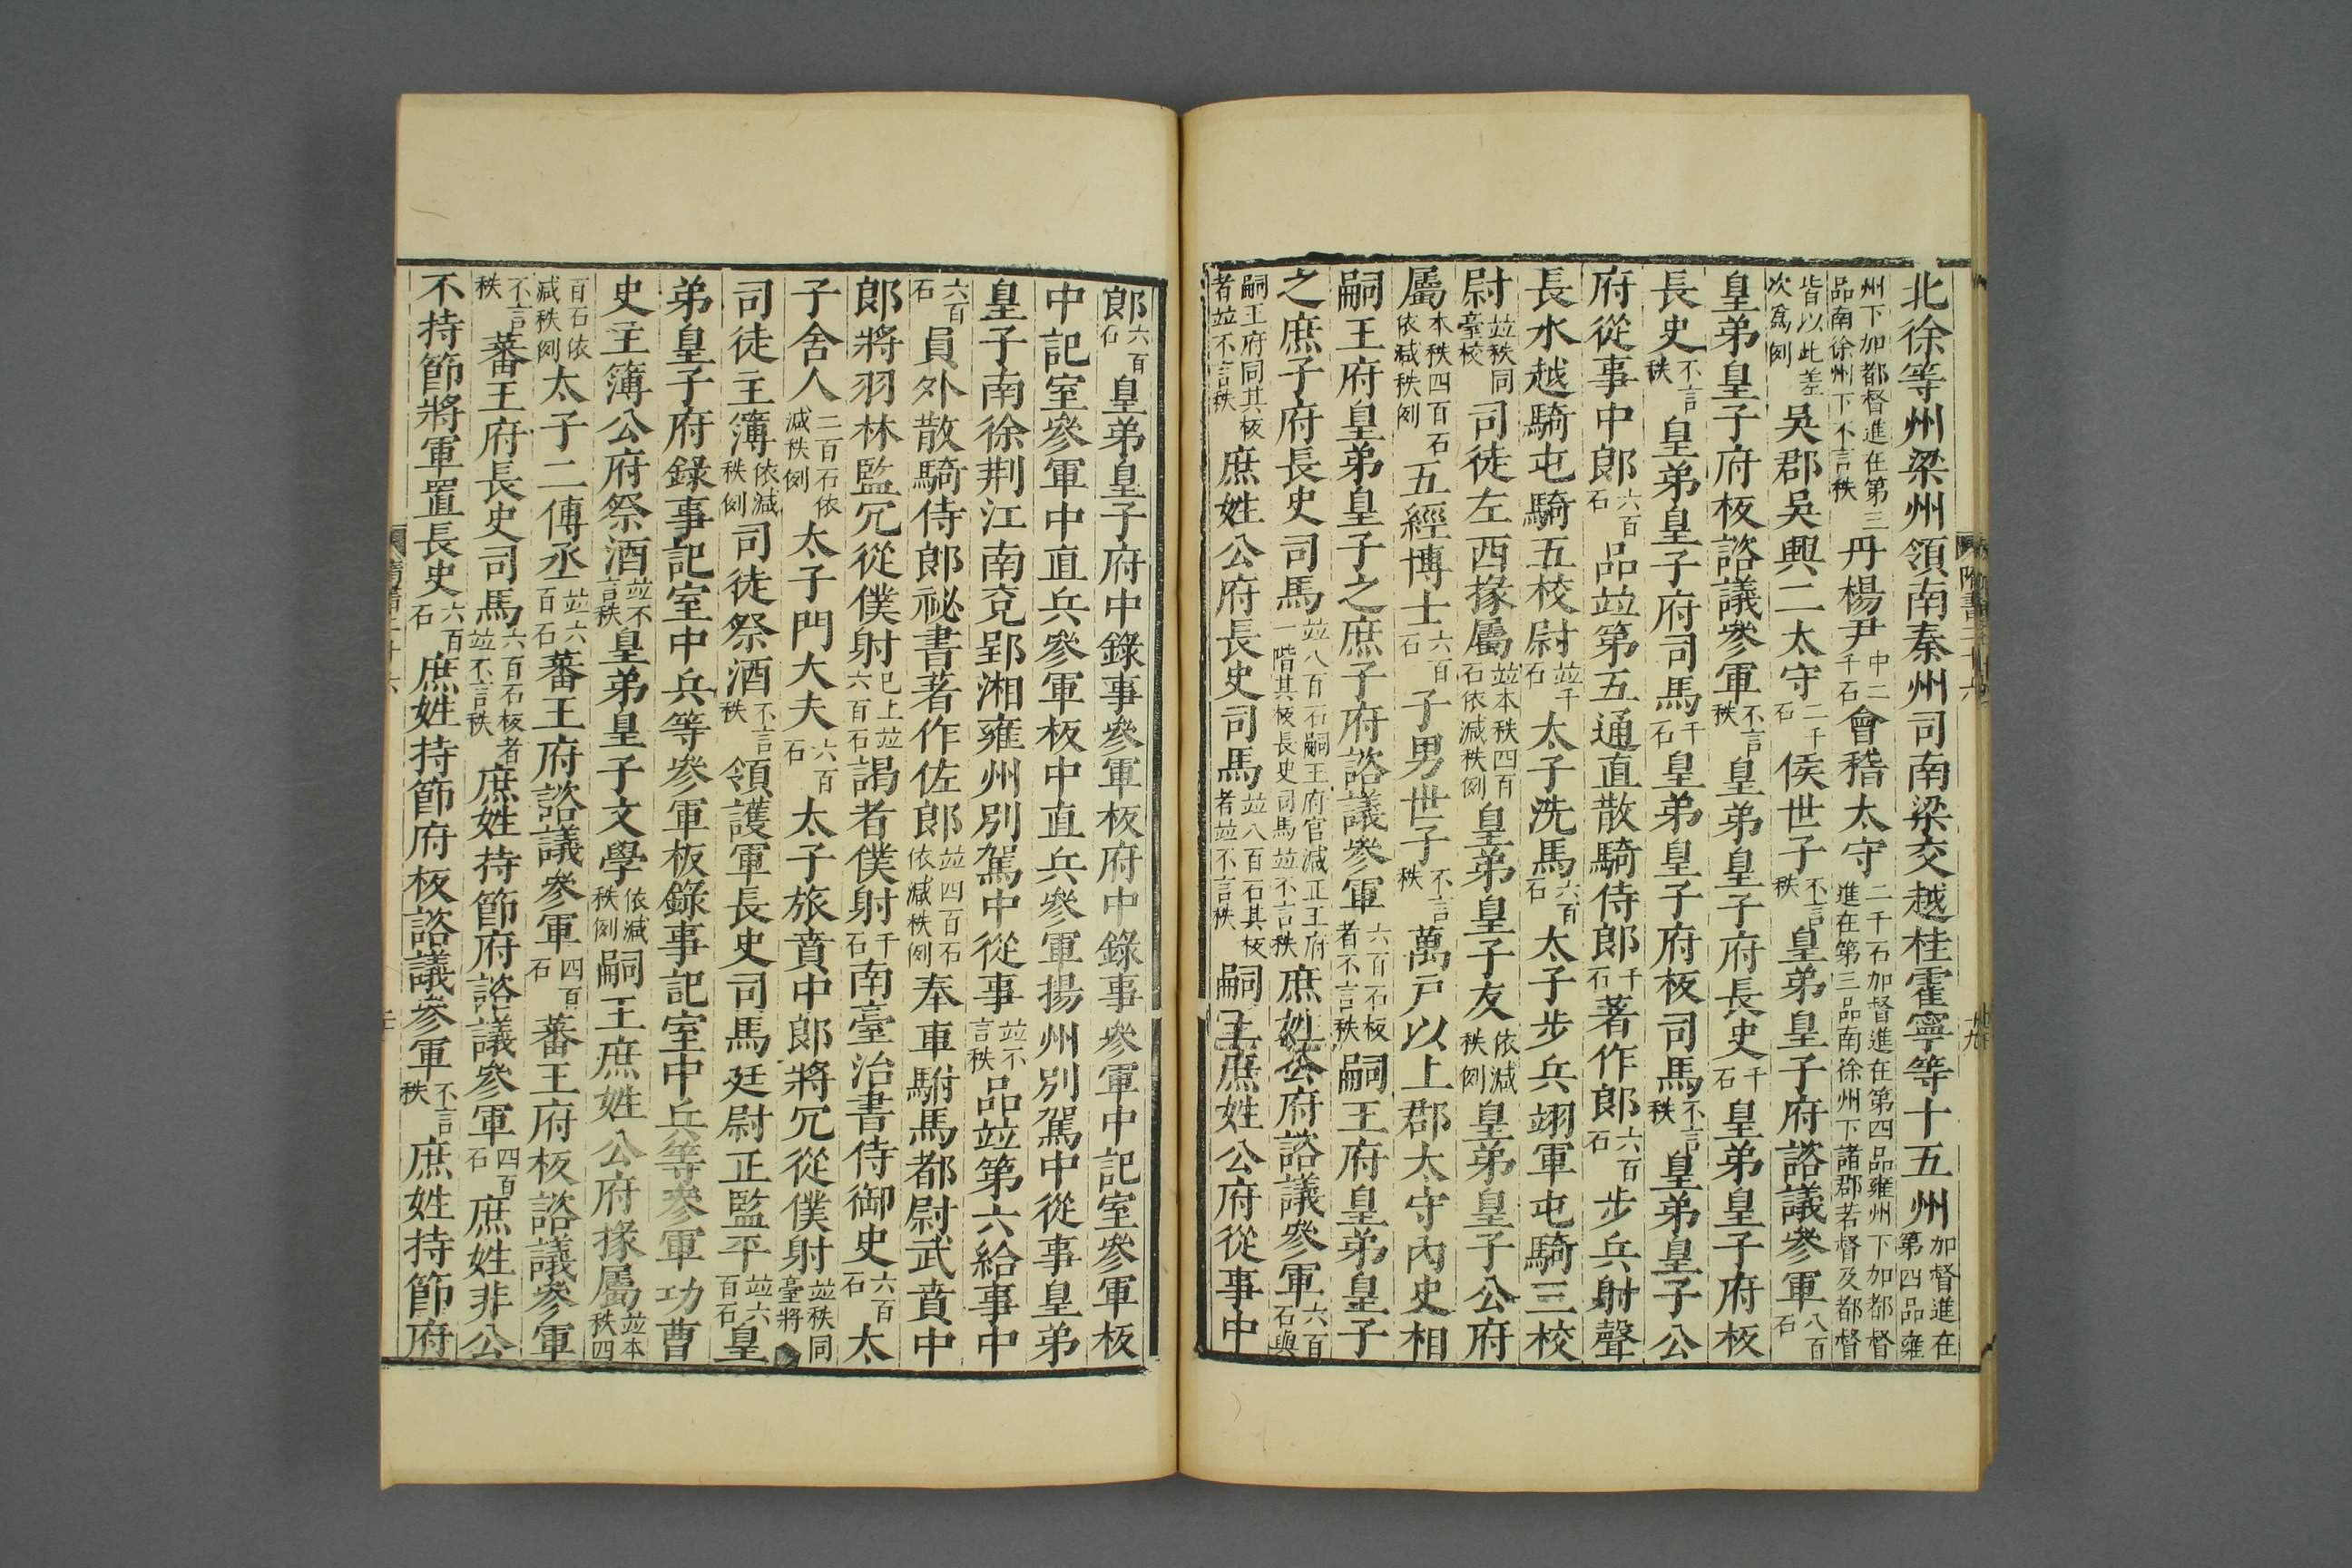 北徐等州梁州領南秦州司南梁交越桂霍寧等十五州加督進在第四品雍
州下加都督進在第三品南徐州下不言秩丹楊尹中二千石會稽太守二千石加督進在第四品雍州下加都督進在第三品南徐州下諸郡若督及都督
皆以此差次爲例吳郡吳興二太守二千石侯世子不言秩皇弟皇子府諮議參軍八百石
皇弟皇子府板諮議參軍不言秩皇弟皇子府長史千石皇弟皇子府板
長史不言秩皇弟皇子府司馬千石皇弟皇子府板司馬不言秩皇弟皇子公
府從事中郎六百石品並第五通直散騎侍郎千石著作郎六百石步兵射聲
長水越騎屯騎五校尉並千石太子洗馬六百石太子步兵翊軍屯騎三校
尉並秩同臺校司徒左西掾屬並本秩四百石依減秩例皇弟皇子友依減秩例皇弟皇子公府
屬本秩四百石依減秩例五經博士六百石子男世子不言秩萬戶以上郡太守內史相
嗣王府皇弟皇子之庶子府諮議參軍六百石板者不言秩嗣王府皇弟皇子
之庶子府長史司馬並八百石嗣王府官減正王府一階其板長史司馬並不言秩庶姓公府諮議參軍六百石與
嗣王府同其板者並不言秩庶姓公府長史司馬並八百石其板者並不言秩嗣王庶姓公府從事中
郎六百石皇弟皇子府中錄事參軍板府中錄事參軍中記室參軍板
中記室參軍中直兵參軍板中直兵參軍揚州別駕中從事皇弟
皇子南徐荆江南兗郢湘雍州別駕中從事並不言秩品並第六給事中
六百石員外散騎侍郎祕書著作佐郎並四百石依減秩例奉車駙馬都尉武賁中
郎將羽林監冗從僕射已上並六百石謁者僕射千石南臺治書侍御史六百石太
子舍人二百石依減秩例太子門大夫六百石太子旅賁中郎將冗從僕射並秩同臺將
司徒主簿依減秩例司徒祭酒不言秩領護軍長史司馬廷尉正監平並六百石皇
弟皇子府錄事記室中兵等參軍板錄事記室中兵等參軍功曹
史主簿公府祭酒並不言秩皇弟皇子文學依減秩例嗣王庶姓公府掾屬並本秩四
百石依減秩例太子二傅丞並六百石蕃王府諮議參軍四百石蕃王府板諮議參軍
不言秩蕃王府長史司馬六百石板者並不言秩庶姓持節府諮議參軍四百石庶姓非公
不持節將軍置長史六百石庶姓持節府板諮議參軍不言秩庶姓持節府